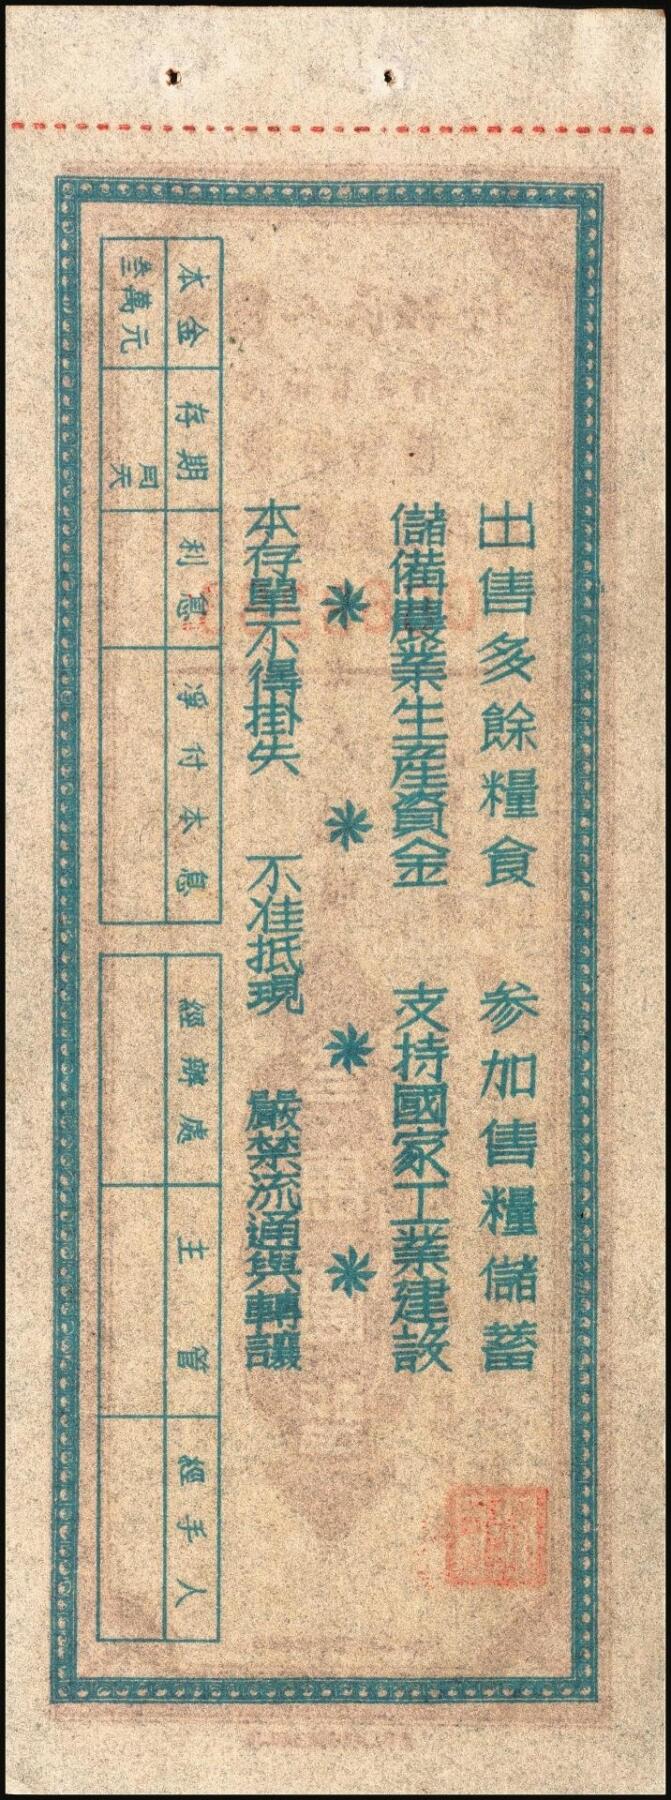 出售多餘糧食 參加售糧儲蓄
儲備農業生產資金 支持國家工業建設
本存單不得掛失 不准抵現 嚴禁流通與轉讓
本金 存期 利息 淨付本息 經辦處 主管 經手人
叁萬元